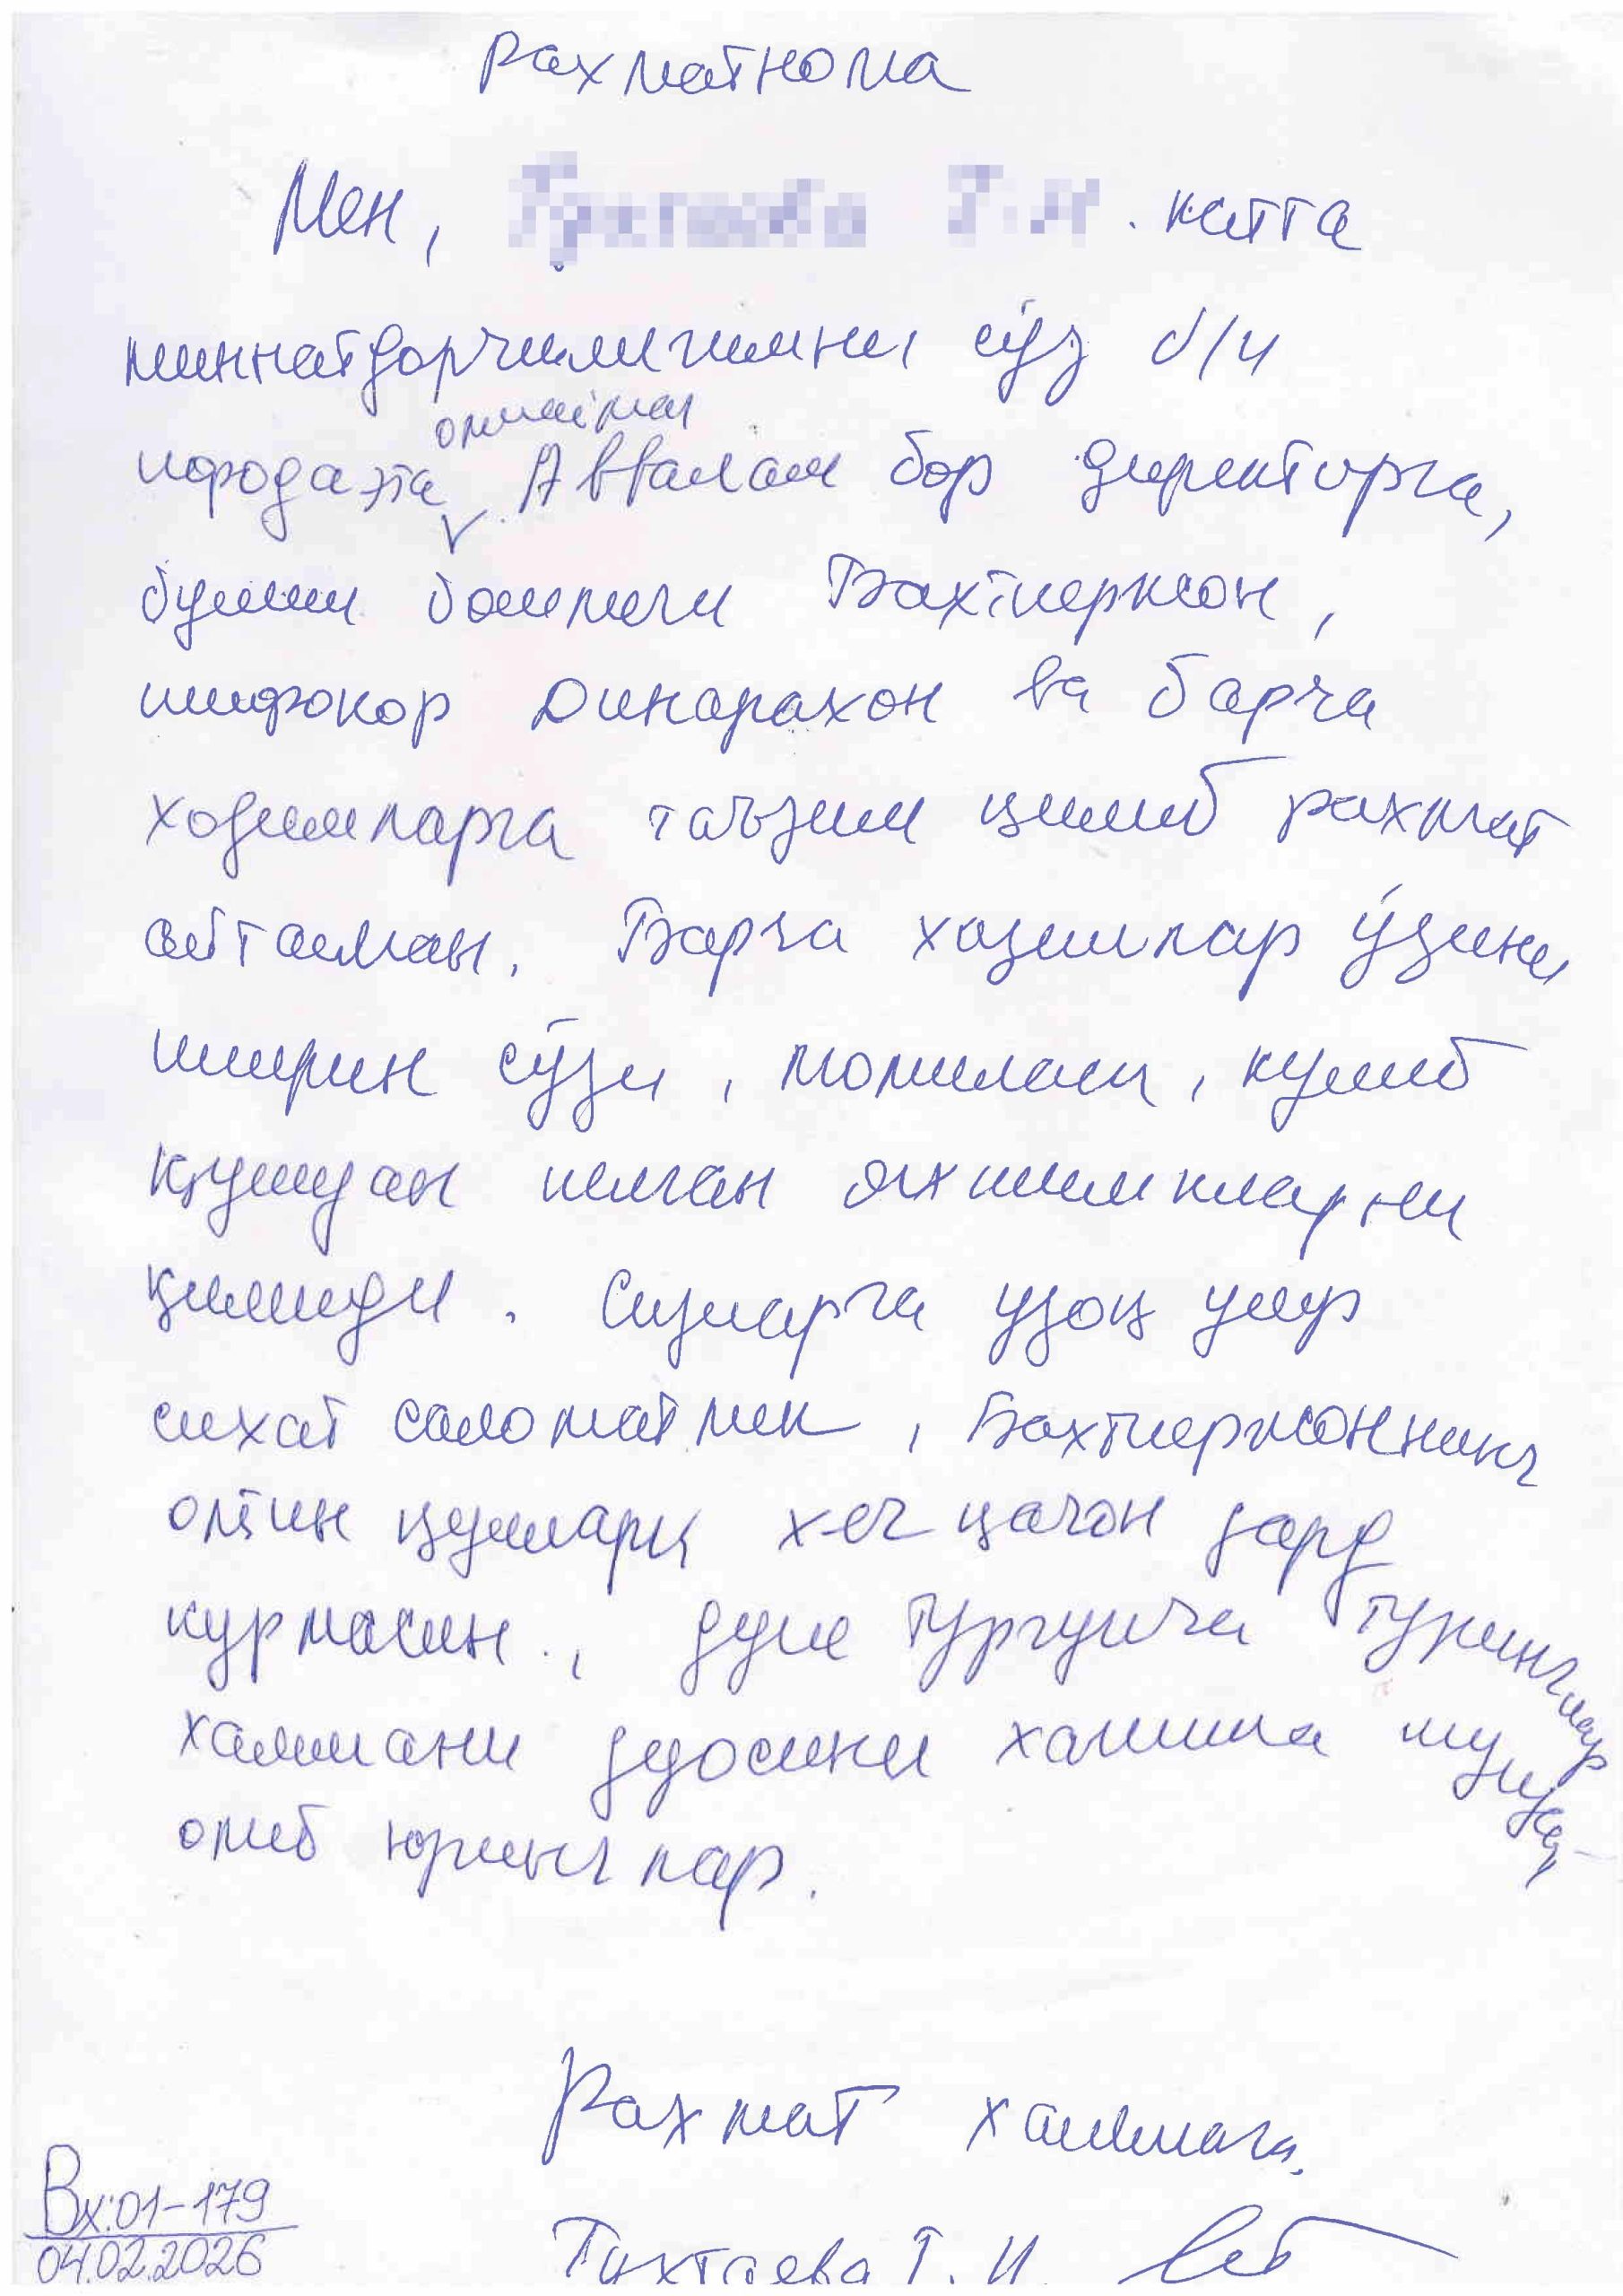 Рахматнома
Мен, . катта
миннатдорчилигимни сўз б/н
ифода эта олмайман. Аввалам бор директорга,
булим бошлиғи Бахтиержон,
шифокор Динарахон ва барча
ходимларга таъзим қилиб рахмат
айтаман. Барча ходимлар ўзини
ширин сўзи, момиласи, кулиб
қулидан келган яхшиликларни
қилишди. Сизларга узоқ умр
сихат саломатлик, Бахтиержоннинг
олтин қуллари хеч қачон дард
курмасин., дуне тургунча туринглар
хаммани дуосини хамиша шундай
олиб юринглар.
Рахмат хаммага.
Тихтаева Т. И
Вх:01-179
04.02.2026